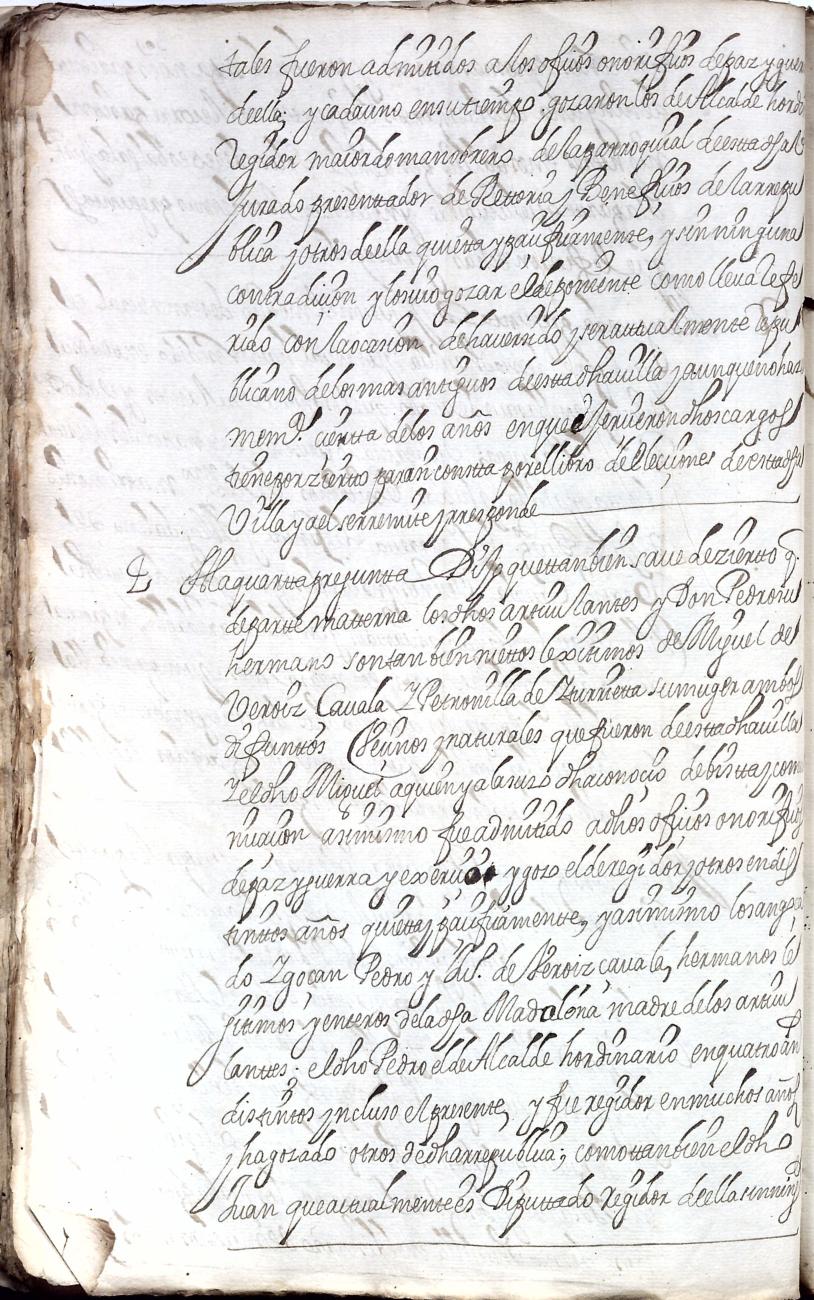 tales fueron admitidos a los ofiçios onorifiços de paz y guerr
de ella; y cada uno en su tiempo gozaron los de Alcalde hordi
Regidor maiordomano obrero de la parroquial de esta dha v
Jurado presenttador de Rettoria y Benefiçios de la rrepu
blica y otros de ella quietta y paçificamente, y sin ninguna
contradicion y los vio gozar el deponiente como lleva Refe
rido con la ocasion de haver sido y ser attualmente Repu
blicano de los mas antiguos de esta dha villa y aunque no haze
mem.ª cierta de los años en que sirvieron dhos cargos
tiene por zierto se aran constta por el libro de Eleçiones de esta dha
Villa y a el se rremite y rresponde
4 A la quartta pregunta Dijo que ttanbien save de zierto q.
de partte matterna los dhos articulantes y Don Pedro su
hermano son tanbien niettos lexitimos de Miguel de
Veroiz Cavala Y Petronilla de Yturrietta su muger ambos
difunttos Veçinos y naturales que fueron de esta dha villa
Y el dho Miguel a quien y a la suso dha conoçio de vista y com
nicaçion asimismo fue admitido a dhos ofiçios onorifiços
de paz y guerra y exerçio y gozo el de regidor y otros en dis
tinttos años quietta y paçificamente, y asimismo los an goza
do Y goçan Pedro y Ju.º de Veroiz cavala, hermanos le
jitimos y enteros de la dha Madalena madre de los articu
lantes. el dho Pedro el de Alcalde hordinario en quatro añ
distintos yncluso el presente, y fue regidor en muchos años
y ha gozado otros de dha rrepublica; como ttanbien el dho
Juan que actualmente es Diputtado regidor de ella sin ning